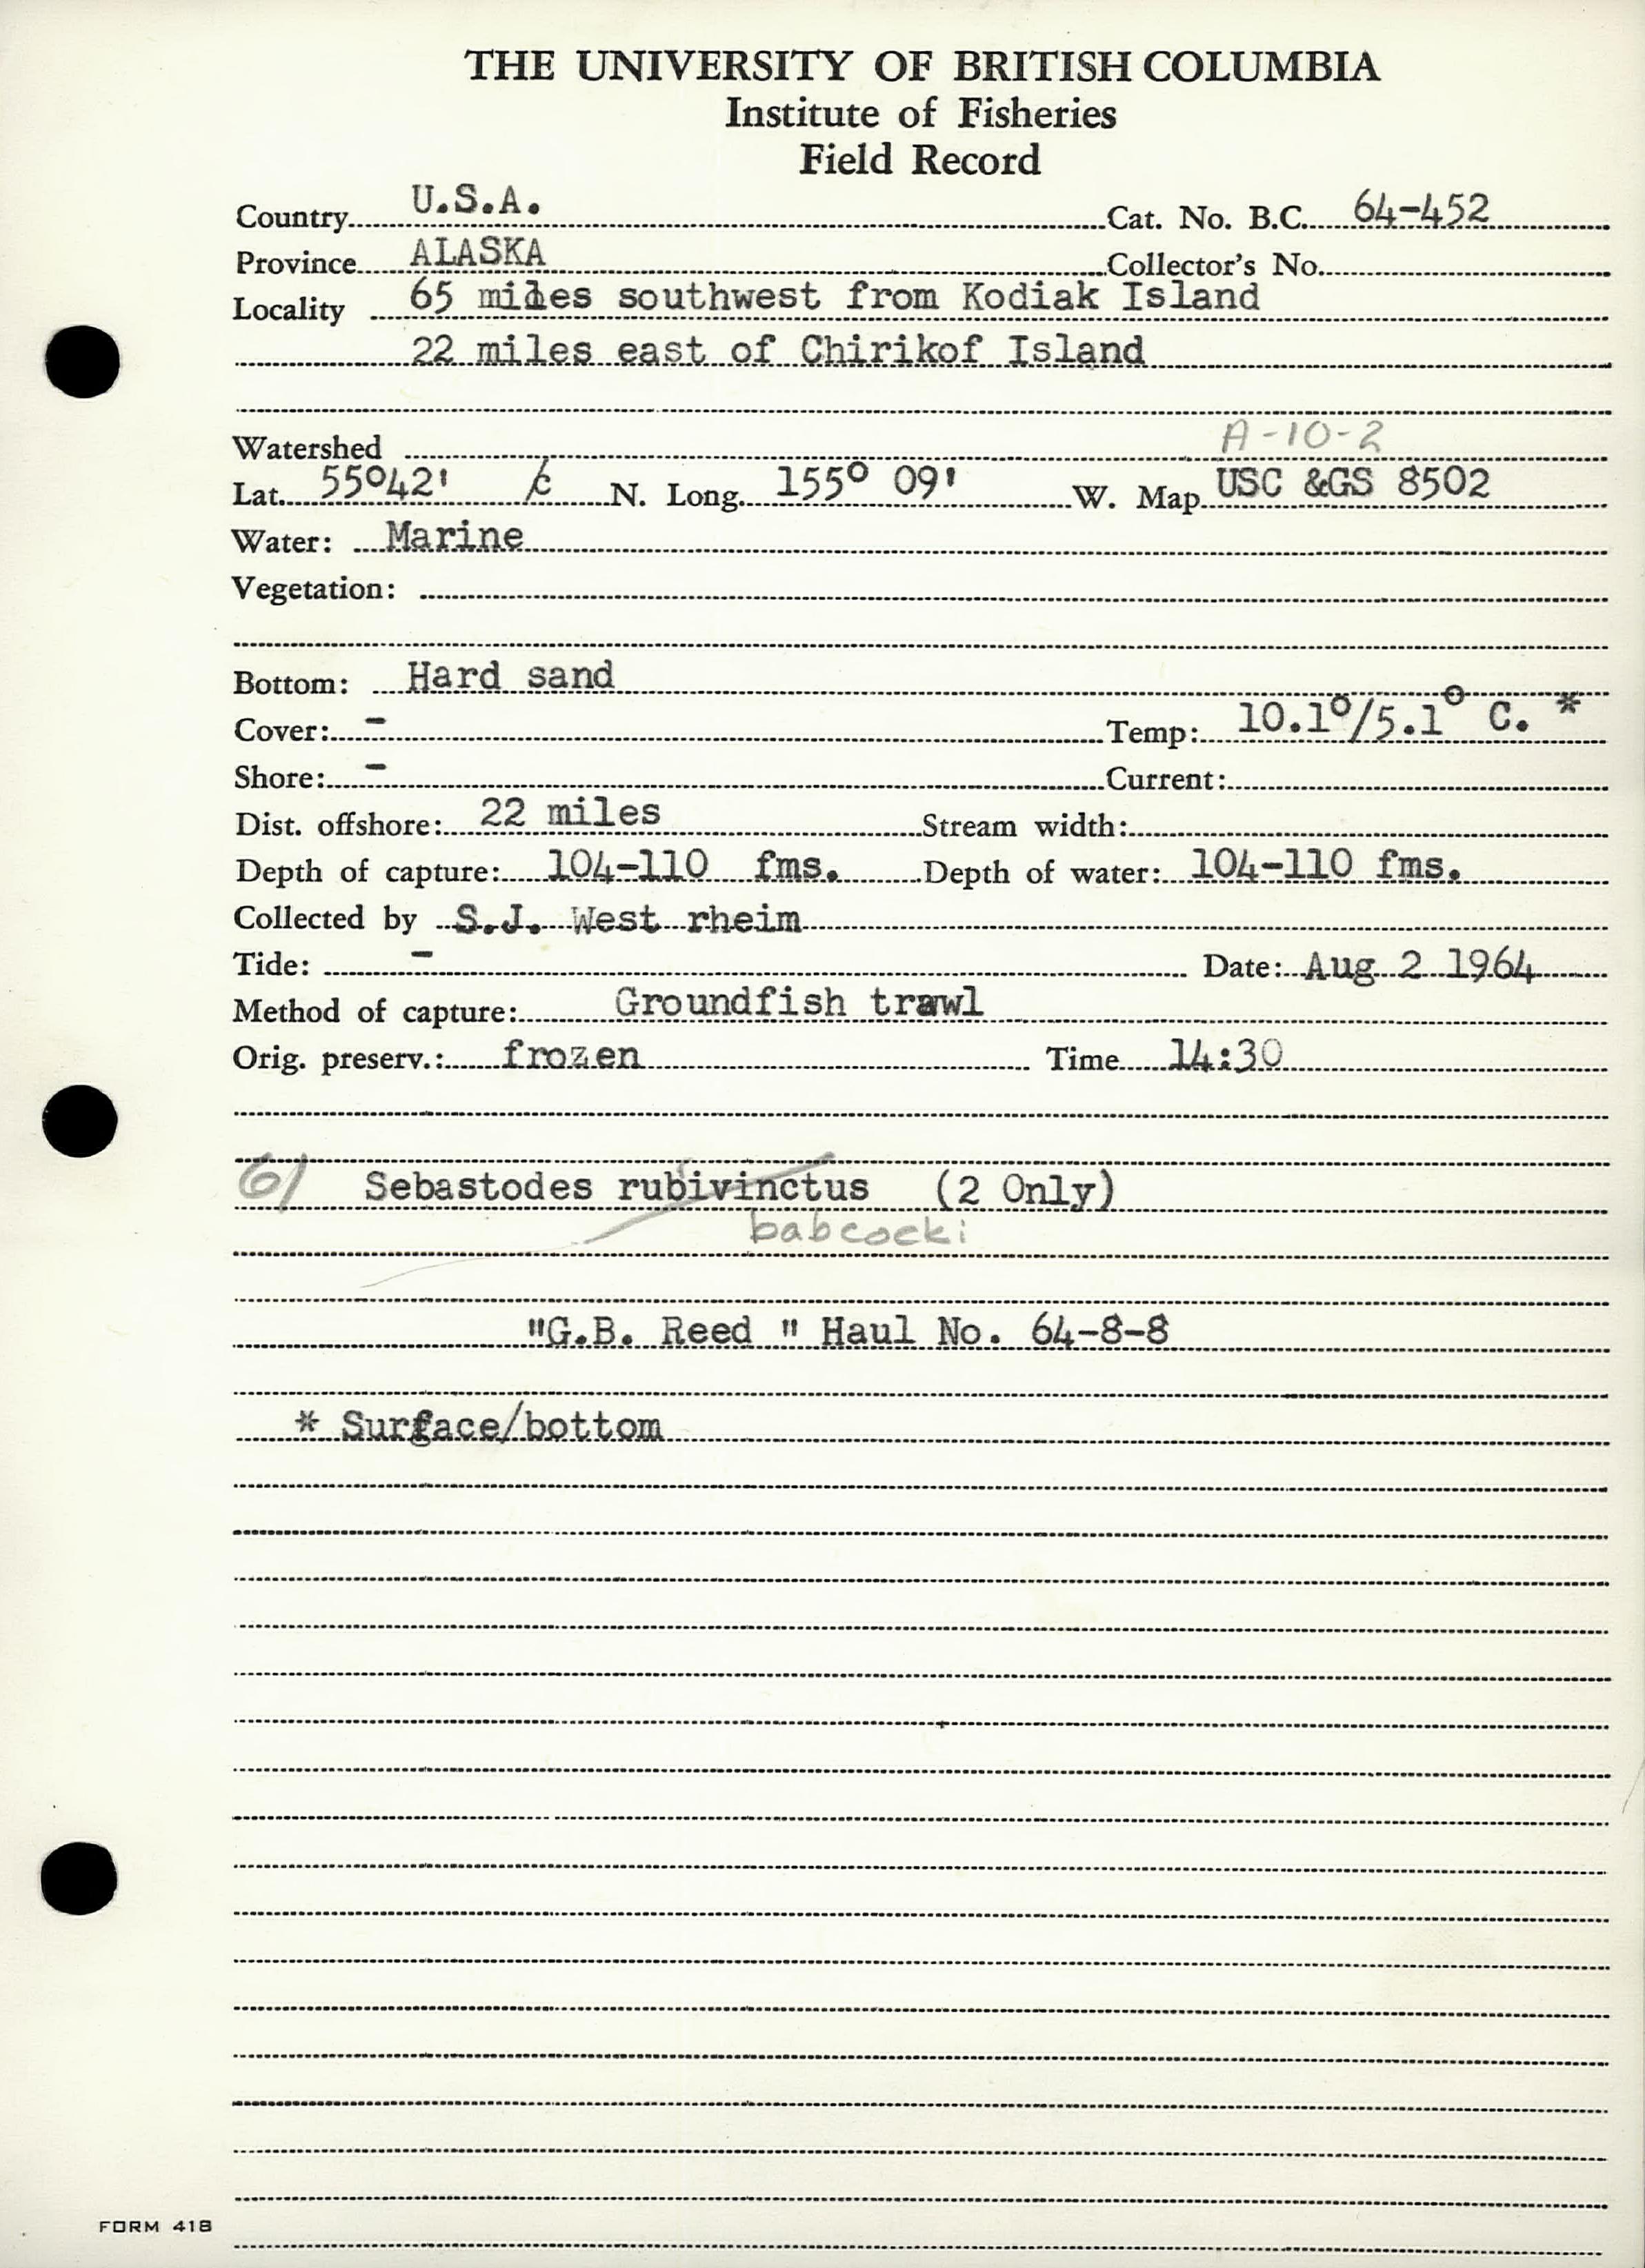 THE UNIVERSITY OF BRITISH COLUMBIA
Institute of Fisheries
Field Record
Country U.S.A. Cat. No. B.C. 64-452
Province ALASKA Collector's No.
Locality 65 miles southwest from Kodiak Island
22 miles east of Chirikof Island
A-10-2
Watershed
Lat. 55°42' N. Long. 155° 09' W. Map USC &GS 8502
Water: Marine
Vegetation:
Bottom: Hard sand
Cover: - Temp: 10.1°/5.1° C. *
Shore: - Current:
Dist. offshore: 22 miles Stream width:
Depth of capture: 104-110 fms. Depth of water: 104-110 fms.
Collected by S.J. West rheim
Tide: - Date: Aug 2 1964
Method of capture: Groundfish trawl
Orig. preserv.: frozen Time 14:30
Sebastodes rubivinctus (2 Only)
babcocki
"G.B. Reed " Haul No. 64-8-8
* Surface/bottom
FORM 418